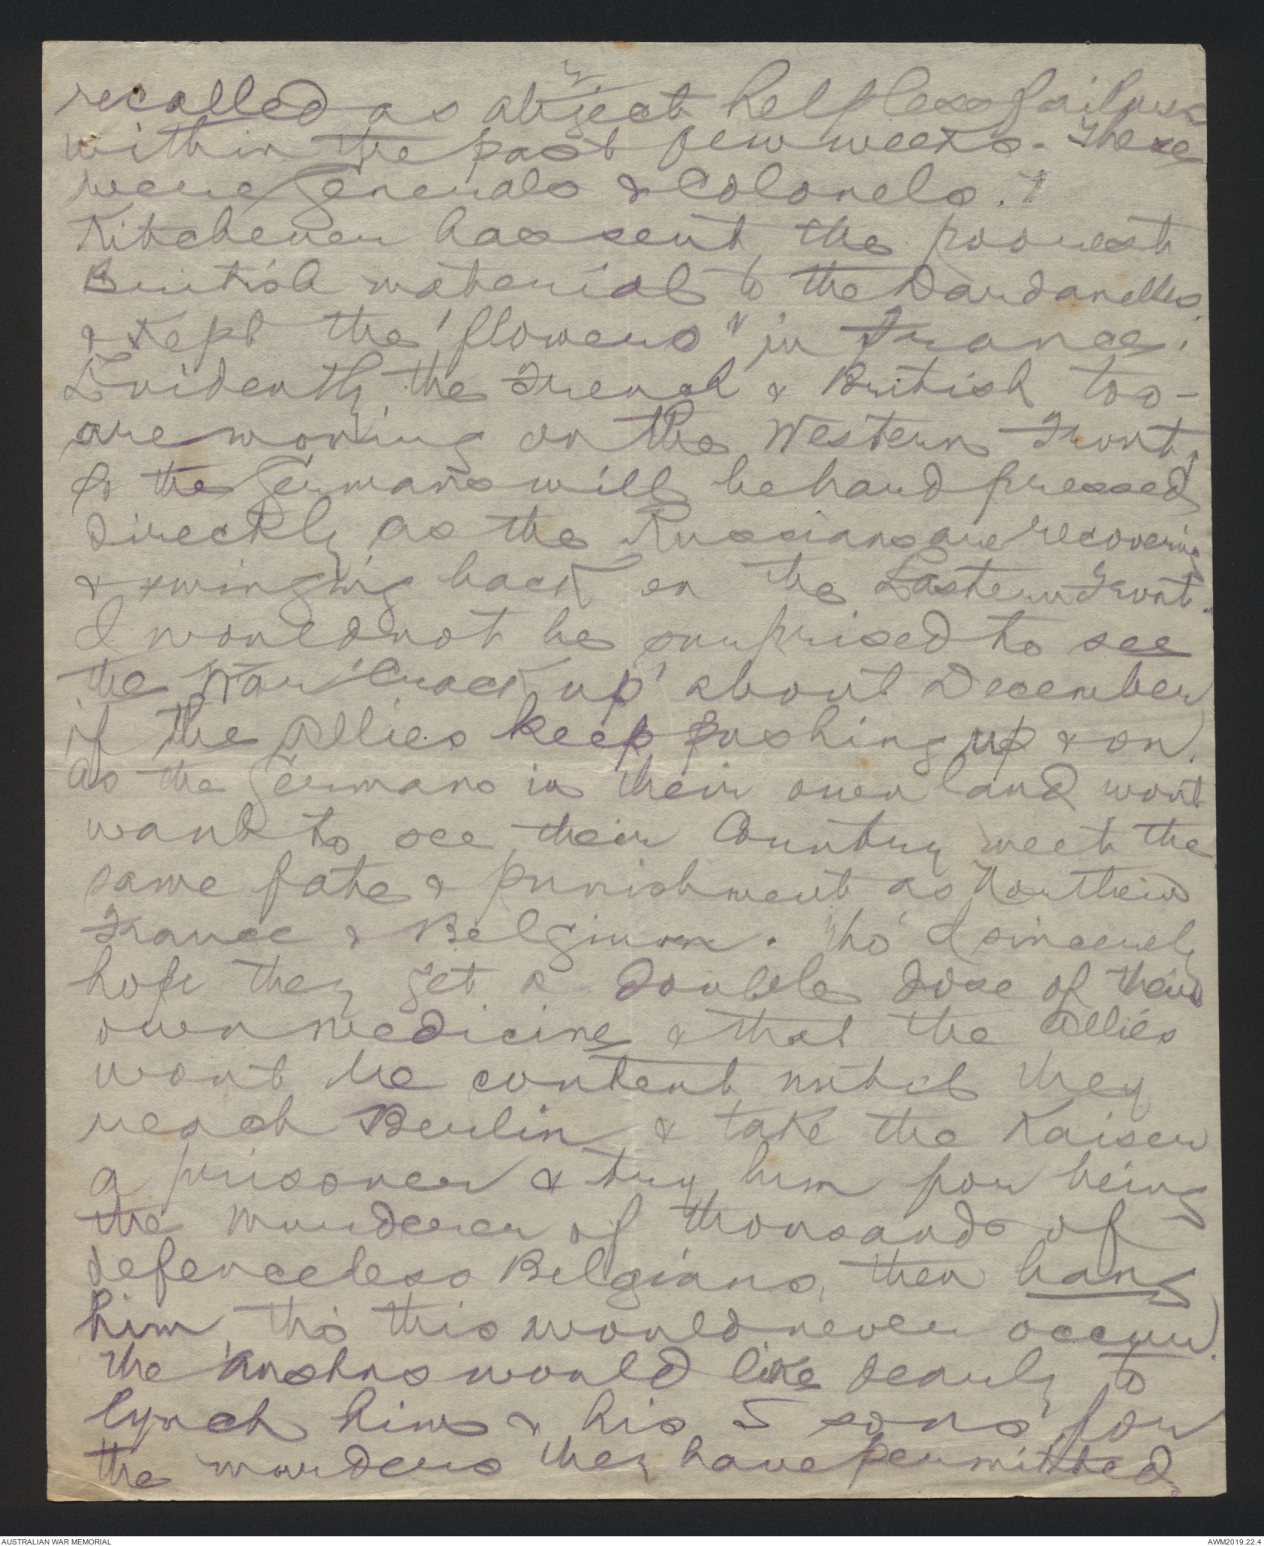 recalled as abject helpless failures
within the past few weeks. These
were Generals & Colonels. &
Kitchener has sent the poorest
British material to the Dardanelles,
& kept the 'flowers" in France.
Evidently the French & British too -
are moving on the Western Front,
& the Germans will be hard pressed
directly as the Russians are recovering
& swinging back on the Eastern Front.
I would not be surprised to see
the War 'Crack up' about December
if the Allies keep pushing up & on,
as the Germans in their own land wont
want to see their Country meet the
same fate & punishment as Northern
France & Belgium. Tho' I sincerely
hope they get a double dose of their
own medicine & that the Allies
wont be content until they
reach Berlin & take the Kaiser
a prisoner & try him for being
the murderer of thousands of
defenceless Belgians, then hang
him, tho' this would never occur.
The Anshns would like dearly to
lynch him & his 5 sons for
the murders they have permitted
AUSTRALIAN WAR MEMORIAL
AWM2019.22.4